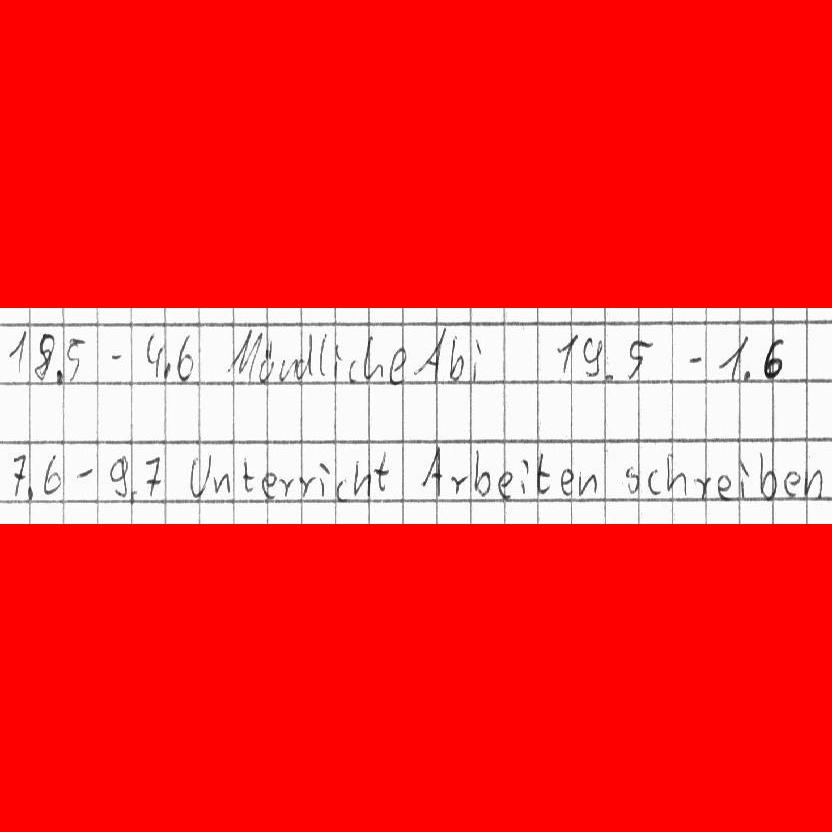 18.5 - 4.6 Mündliche Abi 19.5 - 1.6
7.6 - 9.7 Unterricht Arbeiten schreiben